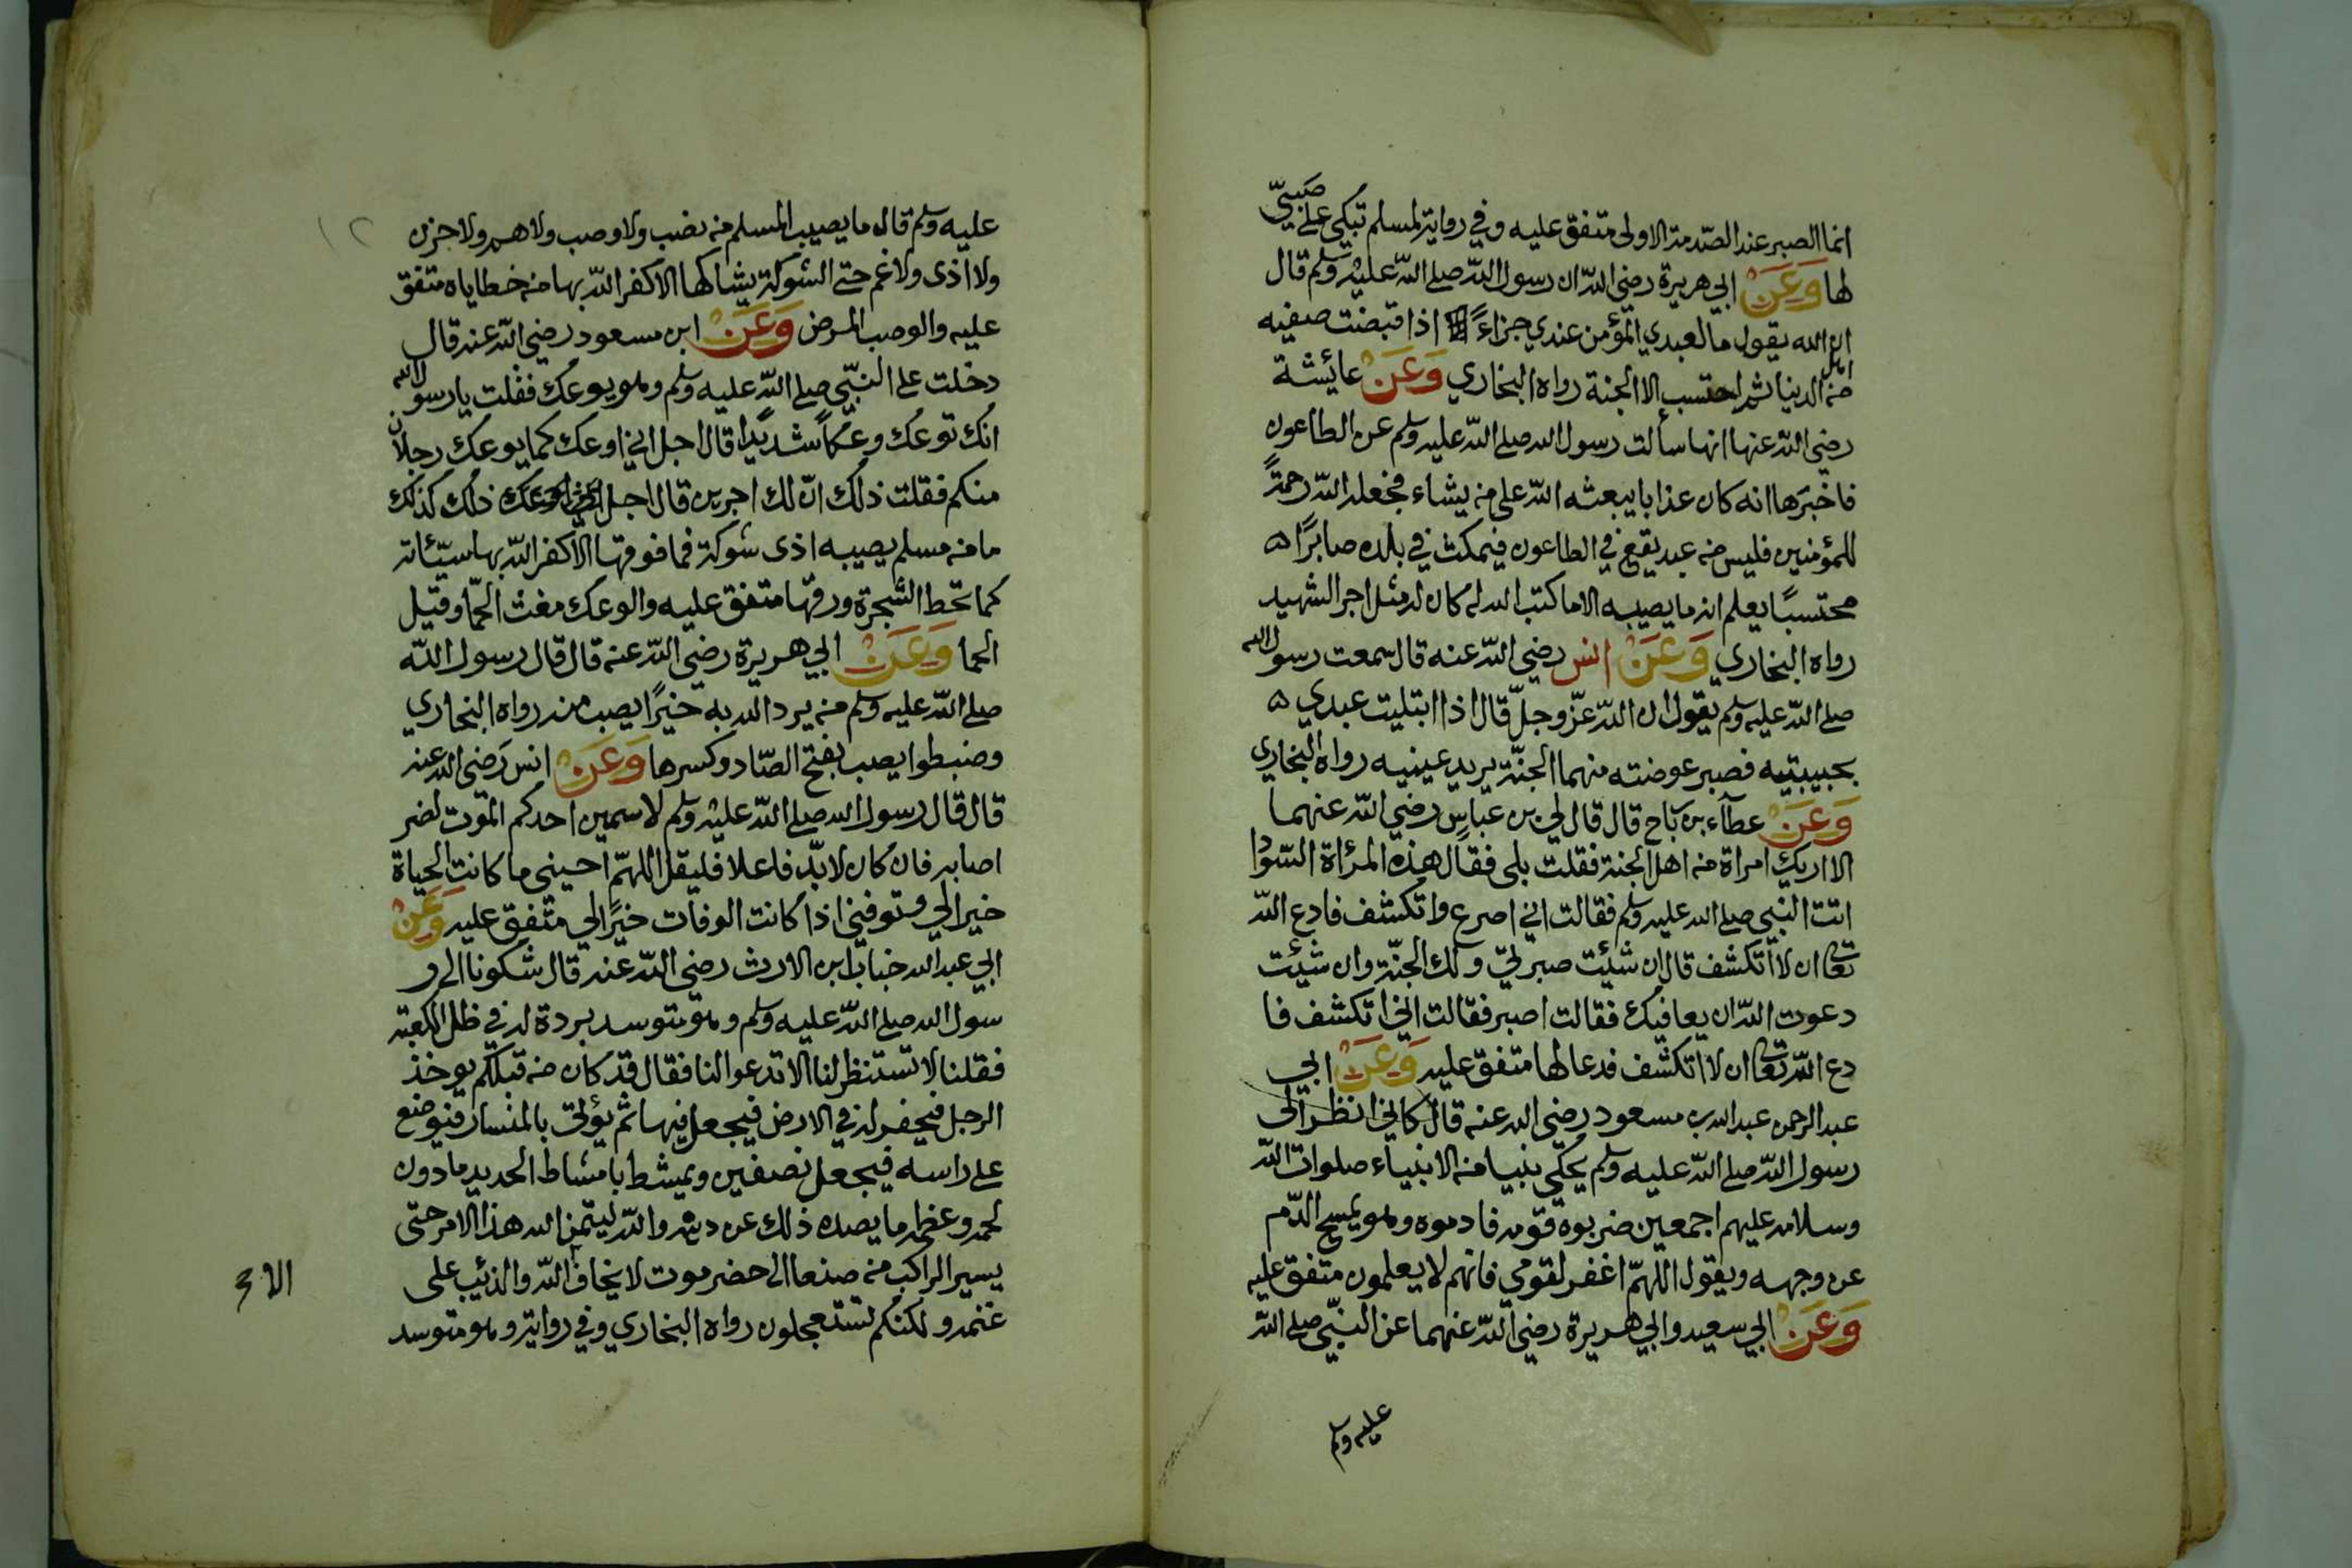 انما الصبر عند الصّدمة الاولى متفق عليه وفي رواية لمسلم تبكي على صبيّ
لها وَعَنْ ابي هريرة رضي اللّٰه ان رسول اللّٰه صلى اللّٰه عليه وسلم قال
ان الله يقول ما لعبدي المؤمن عندي جزاءً اذا قبضت صفيه
من اهل الدنيا ثم احتسب الا الجنة رواه البخاري وَعَنْ عائيشة
رضي اللّٰه عنها انها سألت رسول الله صلى اللّٰه عليه وسلم عن الطاعون
فاخبرها انه كان عذابا يبعثه اللّٰه على من يشاء فجعله اللّٰه رحمةً
للمؤمنين فليس من عبد يقع في الطاعون فيمكث في بلده صابرًا ه
محتسبًا يعلم انه ما يصيبه الا ما كتب الله له كان له مثل اجر الشهيد
رواه البخاري وَعَنْ انس رضي اللّٰه عنه قال سمعت رسول الله
صلى اللّٰه عليه وسلم يقول ان اللّٰه عزّ وجلّ قال اذا ابتليت عبدي ه
بحبيبتيه فصبر عوضته منهما الجنّة يريد عينيه رواه البخاري
وَعَنْ عطآء بن رَباح قال قال لي بن عباسٍ رضي اللّٰه عنهما
الا اريك امراة من اهل الجنة فقلت بلى فقال هذه المرٔاة السّوٓدا
اتت النبي صلى الله عليه وسلم فقالت اني اصرع واتكشف فادع اللّٰه
تعالى ان لا اتكشف قال ان شئيت صبرتي ولك الجنّة وان شئيت
دعوت اللّٰه ان يعافيك فقالت اصبر فقالت اني اتكشف فا
دع اللّٰه تعالى ان لا اتكشف فدعا لها متفق عليه وَعَنْ ابي
عبد الرحمن عبد الله بن مسعود رضي الله عنه قال كاني انظر الى
رسول اللّٰه صلى اللّٰه عليه وسلم يحكي نبيا من الانبياء صلوات اللّٰه
وسلامه عليهم اجمعين ضربوه قومه فادموه وهو يمسح الدّم
عن وجهه ويقول اللهمّ اغفر لقومي فانهم لا يعلمون متفق عليه
وَعَنْ ابي سعيد وابي هريرة رضي اللّٰه عنهما عن النبّي صلى اللّٰه
عليه وسلم
١٢
عليه وسلم قال ما يصيب المسلم من نصب ولا وصب ولا هم ولا حزن
ولا اذى ولا غم حتى الشوكة يشاكها الا كفر اللّٰه بها من خطاياه متفق
عليه والوصب المرض وَعَنْ ابن مسعود رضي اللّٰه عنه قال
دخلت على النبّي صلى اللّٰه عليه وسلم وهو يوعك فقلت يا رسول الله
انك توعك وعكاً شديدًا قال اجل اني اوعك كما يوعك رجلان
منكم فقلت ذلك انّ لك اجرين قال اجل ذلك كذلك
ما من مسلم يصيبه اذى شوكة فما فوقها الا كفر اللّٰه بها سيّئاته
كما تحط الشجرة ورقها متفق عليه والوعك مغث الحمّا وقيل
الحما وَعَنْ ابي هريرة رضي اللّٰه عنه قال قال رسول اللّٰه
صلى اللّٰه عليه وسلم من يرد الله به خيرًا يصب منه رواه البخاري
وضبطوا يصب بفتح الصّاد وكسرها وَعَنْ انس رَضي الله عنه
قال قال رسول الله صلى اللّٰه عليه وسلم لا احدكم الموت لضر
اصابه فان كان لا بدّ فاعلا فليقل اللهمّ احيني ما كانت الحياة
خيرا لي وتوفني اذا كانت الوفات خيرًا لي متفق عليه وَعَنْ
ابي عبد الله خباب ابن الارث رضي اللّٰه عنه قال شكونا الى ر
سول الله صلى اللّٰه عليه وسلم وهو متوسد بردة له في ظل الكعبة
فقلنا لا تستنظر لنا الا تدعوا لنا فقال قد كان من قبلكم يوخذ
الرجل فيحفر له في الارض فيجعل فيها ثم يؤتى بالمنسار فيوضع
على راسه فيجعل نصفين ويمشط بامشاط الحديد ما دون
لحمه وعظمه ما يصده ذلك عن دينه واللّٰه ليتمن الله هذا الامر حتى
يسير الراكب من صنعا الى حضرموت لا يخاف الا اللّٰه والذئيب على
غنمه ولكنكم تستعجلون رواه البخاري وفي رواية وهو متوسد